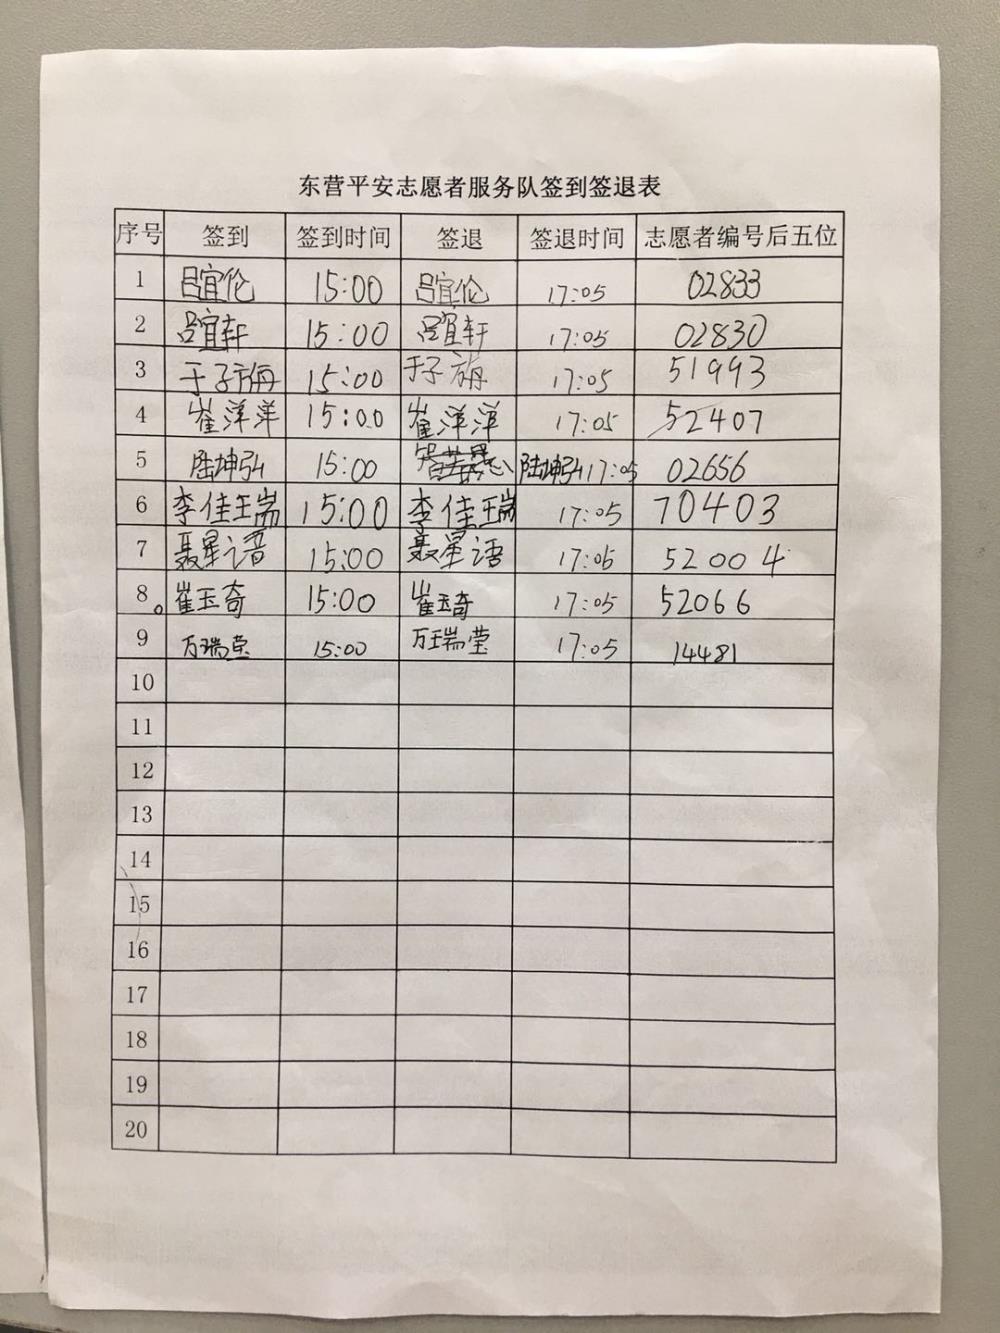 东营平安志愿者服务队签到签退表
序号 签到 签到时间 签退 签退时间 志愿者编号后五位
1 吕宜伦 15:00 吕宜伦 17:05 02833
2 吕宜轩 15:00 吕宜轩 17:05 02830
3 于子旃 15:00 于子旃 17:05 51993
4 崔洋洋 15:00 崔洋洋 17:05 52407
5 陆坤弘 15:00 陆坤弘 17:05 02656
6 李佳瑞 15:00 李佳瑞 17:05 70403
7 聂星语 15:00 聂星语 17:05 52004
8 崔玉奇 15:00 崔玉琦 17:05 52066
9 万瑞莹 15:00 万瑞莹 17:05 14481
10
11
12
13
14
15
16
17
18
19
20